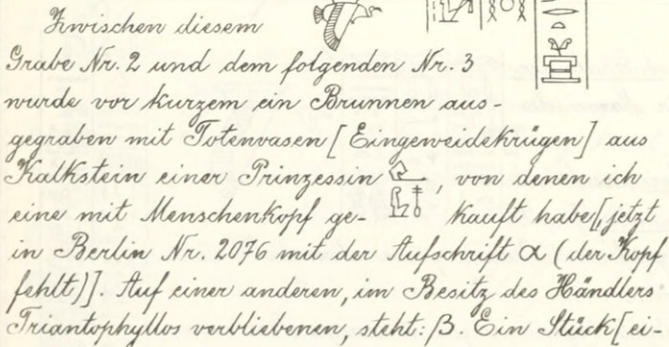 Zwischen diesem
Grabe Nr. 2 und dem folgenden Nr. 3
wurde vor kurzem ein Brunnen aus-
gegraben mit Totenvasen [Eingeweidekrügen] aus
Kalkstein einer Prinzessin , von denen ich
eine mit Menschenkopf ge- kauft habe[, jetzt
in Berlin Nr. 2076 mit der Aufschrift α (der Kopf
fehlt)]. Auf einer anderen, im Besitz des Händlers
Triantophyllos verbliebenen, steht: β. Ein Stück [ei-